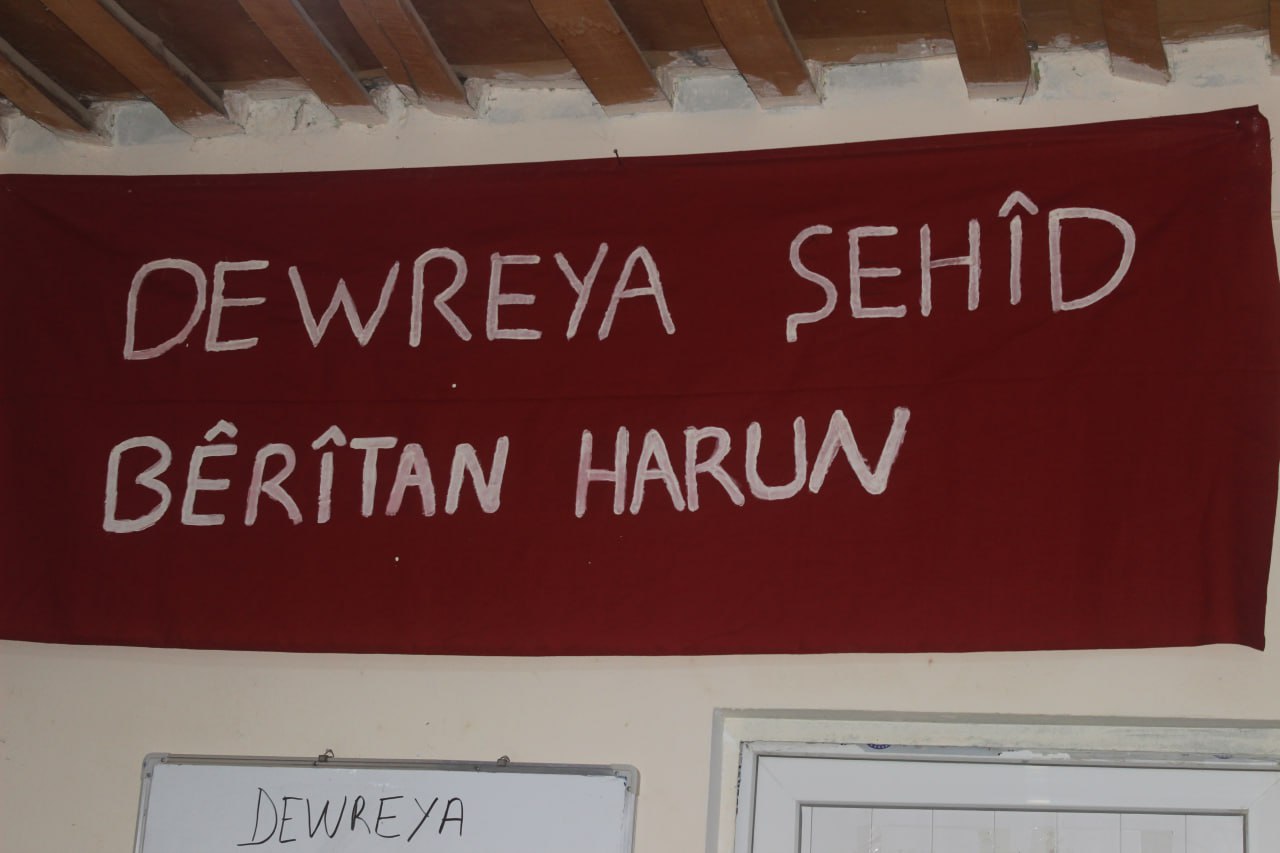 DEWREYA ŞEHÎD
BÊRÎTAN HARUN
DEWREYA